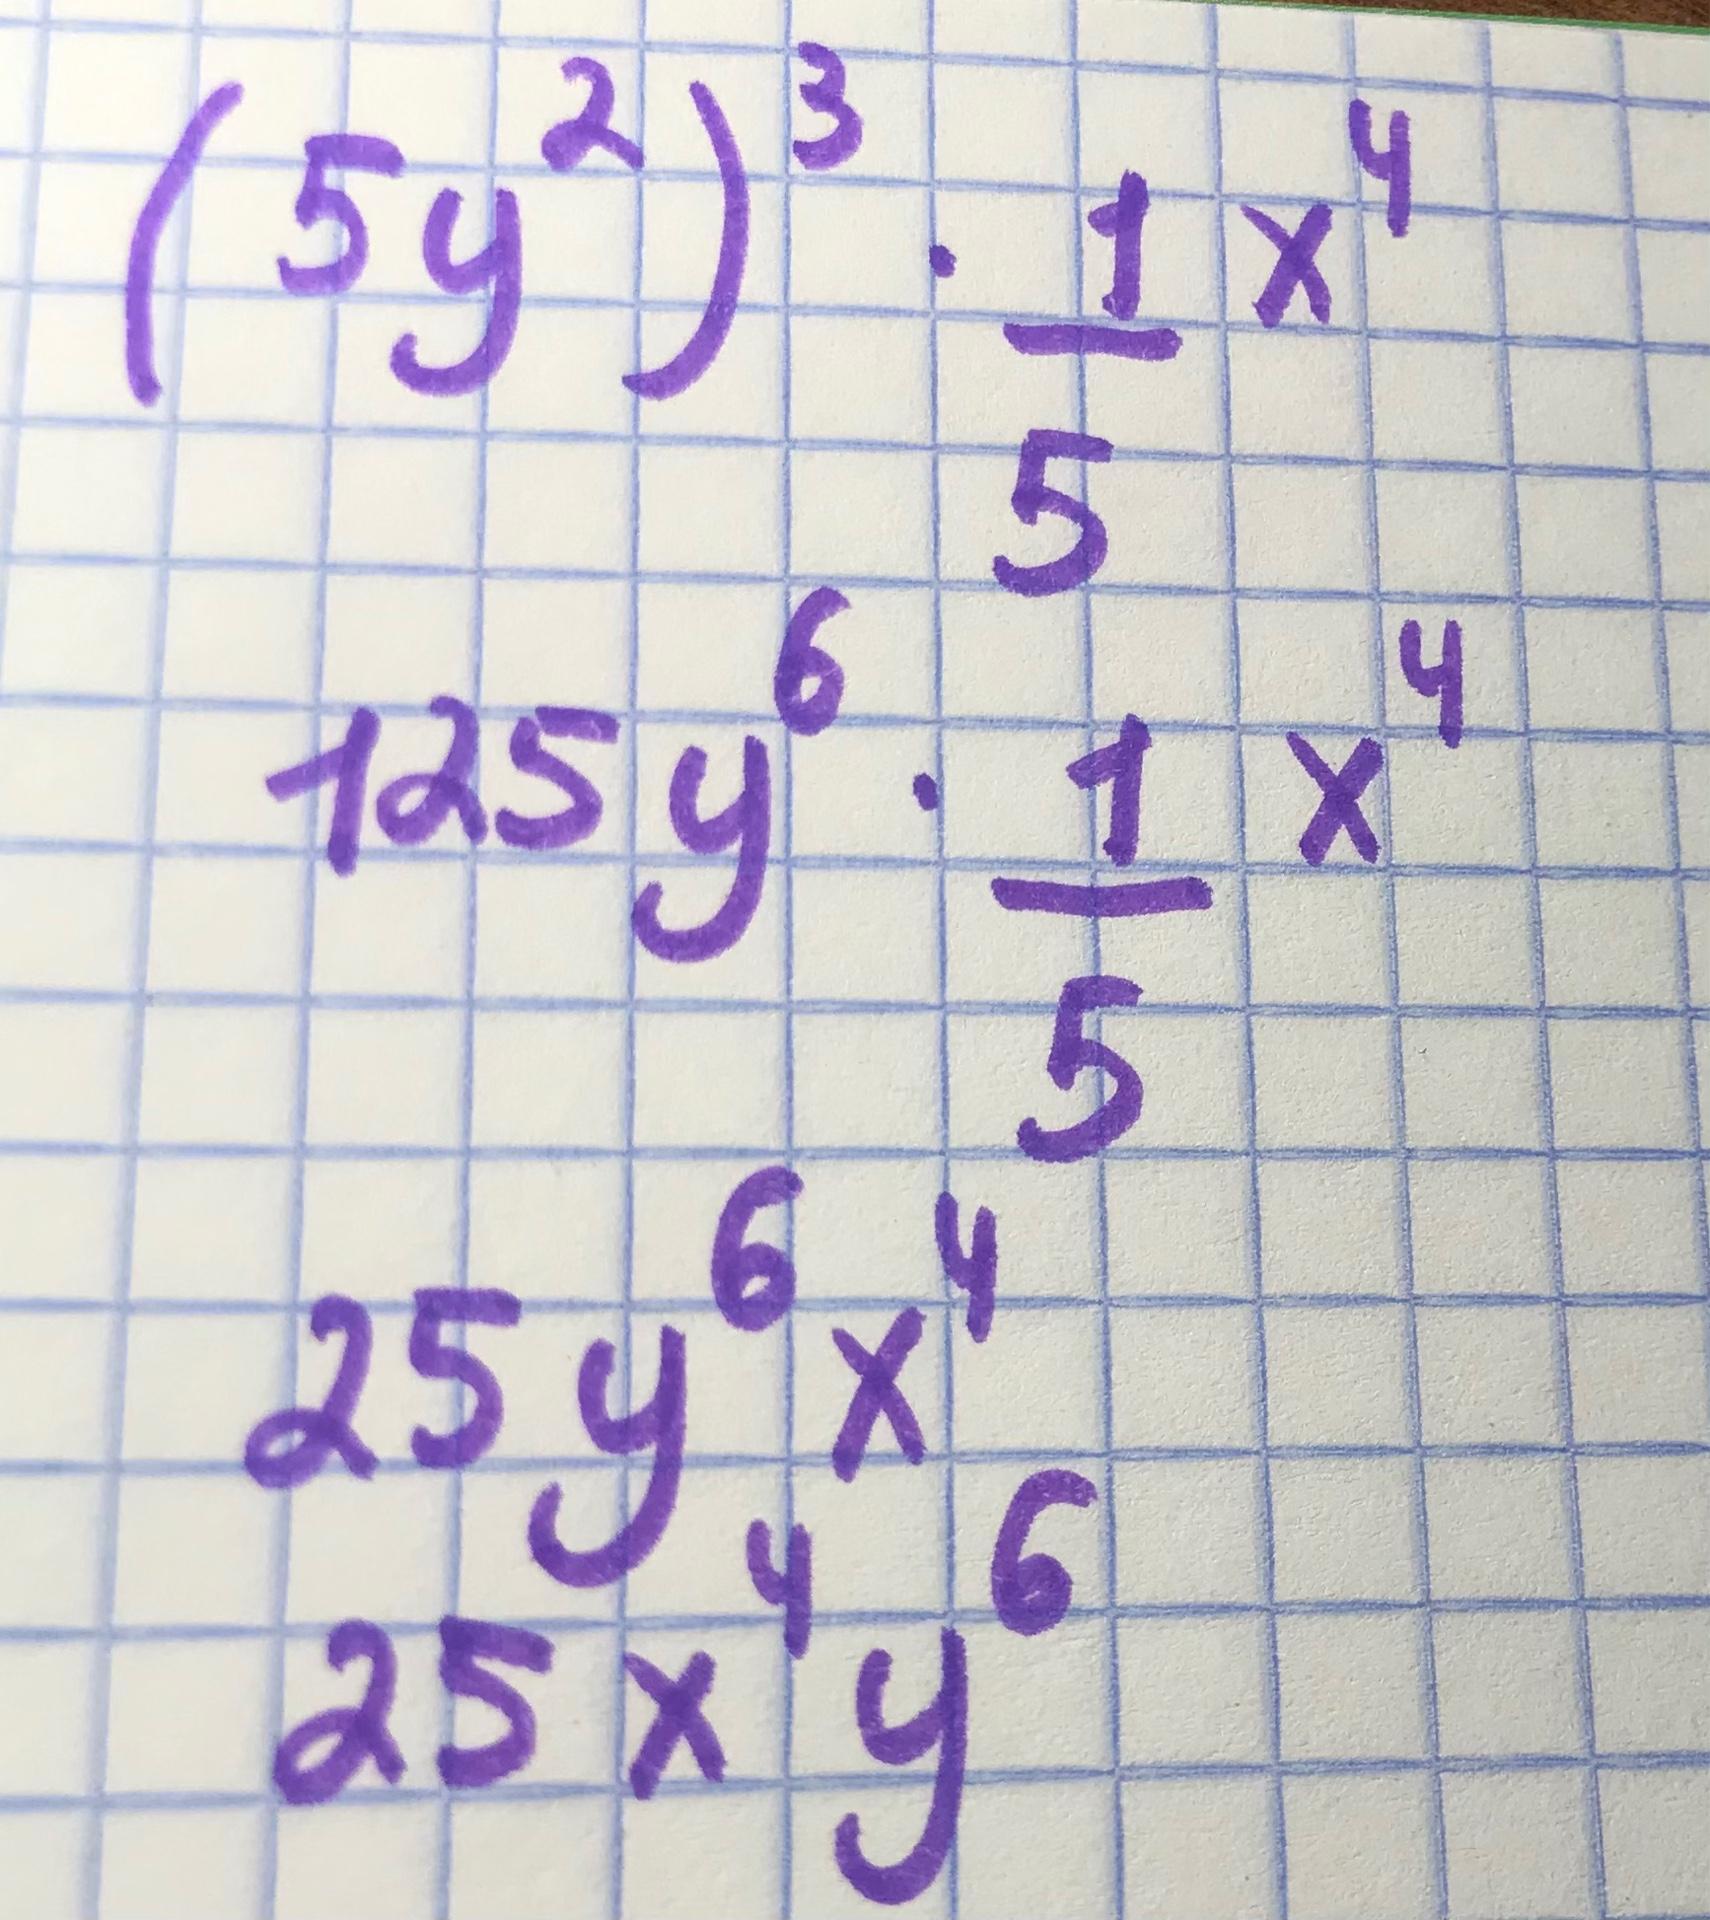 (5y²)³ · 1/5 x⁴
125y⁶ · 1/5 x⁴
25y⁶x⁴
25x⁴y⁶